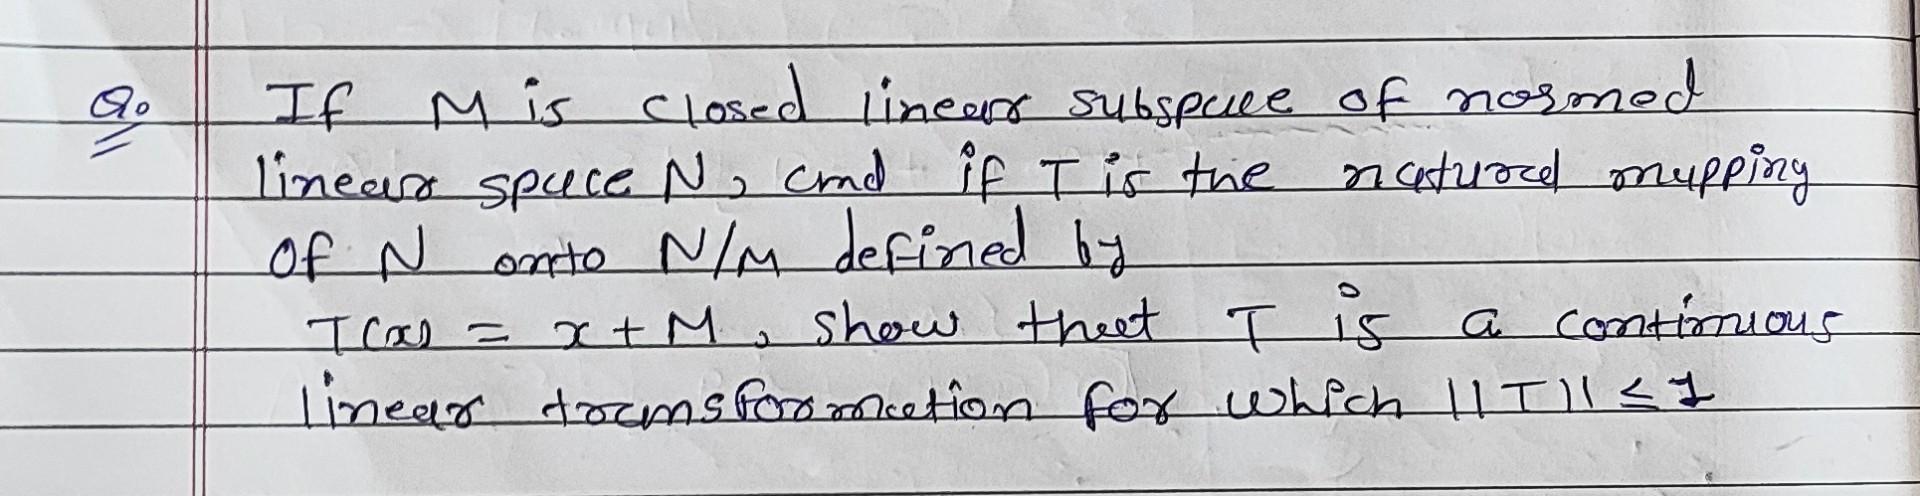 Q. If M is closed linear subspace of normed
linear space N, and if T is the natural mapping
of N onto N/M defined by
T(x) = x + M, show that T is a continuous
linear transformation for which ||T|| ≤ 1